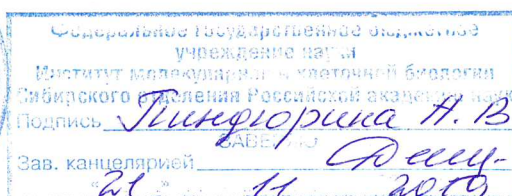 Федеральное государственное бюджетное
учреждение науки
Институт молекулярной и клеточной биологии
Сибирского отделения Российской академии наук
Подпись Пиндюрина А. В
ЗАВЕРЯЮ
Зав. канцелярией
"21" 11 2019